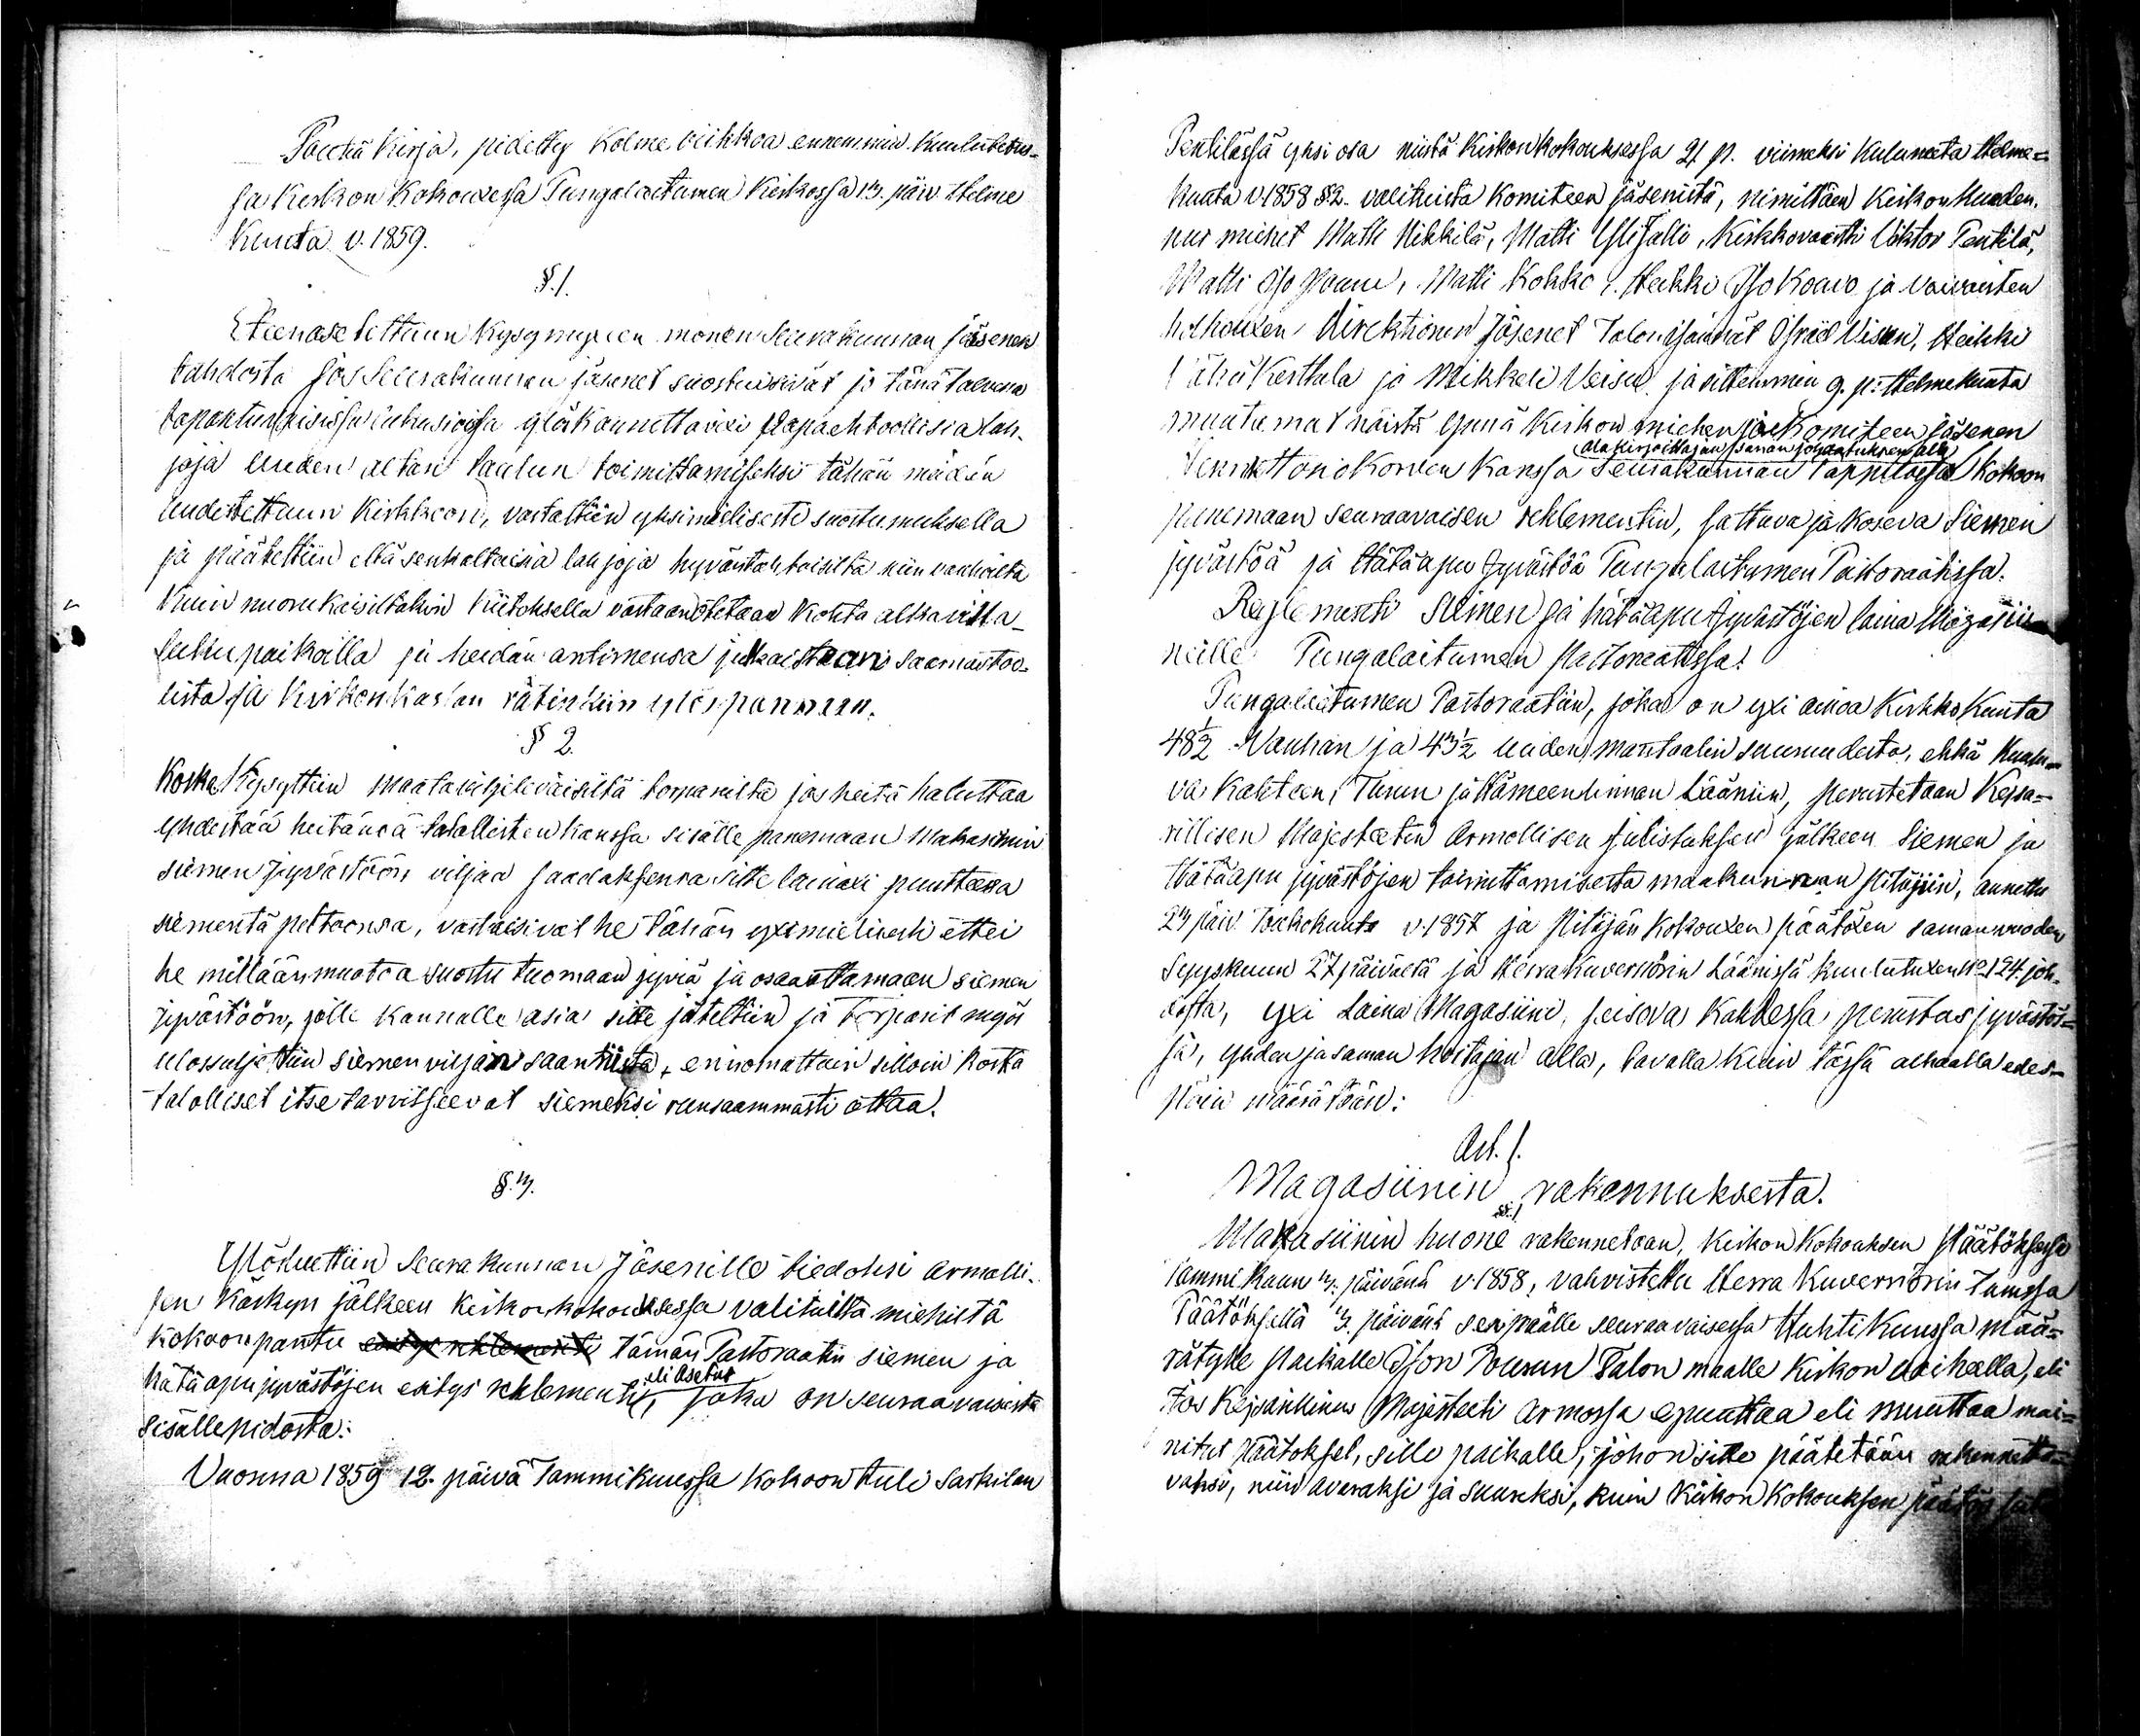 Poutäkirja, pidetty Kolme viikkoa ennemmin Kuulutetus-
sa Kirkon Kokouxessa Pungalaitumen Kirkossa 13. päiv. Helme
Kuuta v. 1859.
§.1.
Eteenasetettuun Kysymyxeen monen Seurakunnan jäsenen
tahdosta jos Seurakunnan jäsenet suostuisivat jo tänä talvena
tapahtuvisissa lukusioissa ylöskannettavixi vapaehtoollisia lah-
joja Uuden altari taulun toimittamiseksi tähän meidän
uudistettuun Kirkkoon, vastattiin yksimielisesti suostumuksella
ja päätettiin että senkaltaisia lahjoja hyväntahtoisilta niin vanhoilta
kuin nuorukaisiltakin kiitoksella vastaanotetaan kohta alkavilla
luku paikoilla ja heidän antimensa julkaistaan saarnastoo-
lista ja Kirkonkassan rätinkiin ylöspannaan.
§ 2.
Koska Kysyttiin maataviljeleväisiltä torpareilta jos heitä haluttaa
yhdistää heitänsä talallisten kanssa sisälle panemaan Makasiinin
siemen jyvästöön viljaa saadaksensa sitte lainaxi puuttaessa
siementä peltoonsa, vastaisivat he tähän yximielisesti ettei
he millään muotoa suostu tuomaan jyviä ja osaaottamaan siemen
jyvästöön, jolle kannalle asia sitte jätettiin ja torparit myös
ulossuljettiin siemen viljan saannista, erinomattain silloin koska
talolliset itse tarvitseevat siemeksi runsaammasti ottaa.
§.3.
Ylösluettiin Seurakunnan Jäsenille tiedoksi armolli-
sen Käskyn jälkeen Kirkonkokouksessa valituilta miehiltä
kokoonpantu esitys reklementti tämän Pastoraatin siemen ja
hätäapu jyvästöjen esitys reklementti, eli Asetus joka on seuraavaisesta
sisällepidosta:
Vuonna 1859 12. päivä Tammikuussa Kokoon tuli Sarkilan
Pentilässä yksi osa niistä Kirkonkokouksessa 21 p. viimeksi kulunutta Helme=
kuuta v. 1858 §2. valituista Komiteen jäsenistä, nimittäin Kirkon kuuden-
nus miehet Matti Nikkilä, Matti Ylistalli, Kirkkovaartti Viktor Pentilä,
Matti Iso, Matti Kokko, Heikki Iso ja Vaivaisten
holhouxen Direktionin Jäsenet Talon isännät Israel Visuri, Heikki
Kerttala ja Mihkeli ja sittemmin 9. p: Helmekuuta
muutamat näistä ynnä Kirkon miehen ja Komiteen jäsenen
Korven Kanssa Alakirjoittajan Papan johdatuksen alla Seurakunnan Pappilassa Kokoon
panemaan seuraavaisen reklementin, sattuva ja koskeva Siemen
jyvästöä ja Hätäapu Jyvästöä Pungalaitumen Pastoraatissa.
Reglementti Siemen ja hätäapu Jyvästöjen laina Magasii-
neille Pungalaitumen Pastoraatissa.
Pungalaitumen Pastoraatiin, joka on yxi ainoa Kirkko Kunta
48½ Vanhan ja 43½ Uuden mantaalin suuruudesta, ehkä kuulu=
va Kahteen, Turun ja Hämeenlinnan Lääniin, perustetaan Keisa=
rillisen Majesteetin Armollisen Julistuksen jälkeen Siemen ja
Hätäapu jyvästöjen toimittamisesta maakunnan Pitäjiin, annettu
23 päiv. Toukokuuta v. 1857 ja Pitäjän Kokouxen päätöxen saman vuoden
Syyskuun 27 päivästä ja Herra Kuvernörin Läänissä kuulutuxen N:o 124. joh-
dosta, yxi Laina Magasiini, seisova Kahdessa perustus jyvästös=
sä, yhden ja saman hoitajan alla, tavalla kuin tässä alhaalla edes-
päin määrätään:
Art. 1.
Magasiinin rakennuksesta.
§.1.
Makasiinin huone rakennetaan, Kirkon Kokouksen Päätöksessä
Tammi Kuun 3. päivänä v. 1858, vahvistettu Herra Kuvernörin Turussa
Päätöksellä päivänä senpäälle seuraavaisessa Huhti Kuussa mää=
rätylle Paikalle Ison Talon maalle Kirkon, eli
Jos Keisarillinen Majesteeti Armossa eli muuttaa mai=
nitut päätökset, sille paikalle, johon sitte päätetään rakennetta=
vaksi, niin avaraksi ja suureksi, kuin Kirkon Kokouksen päätös